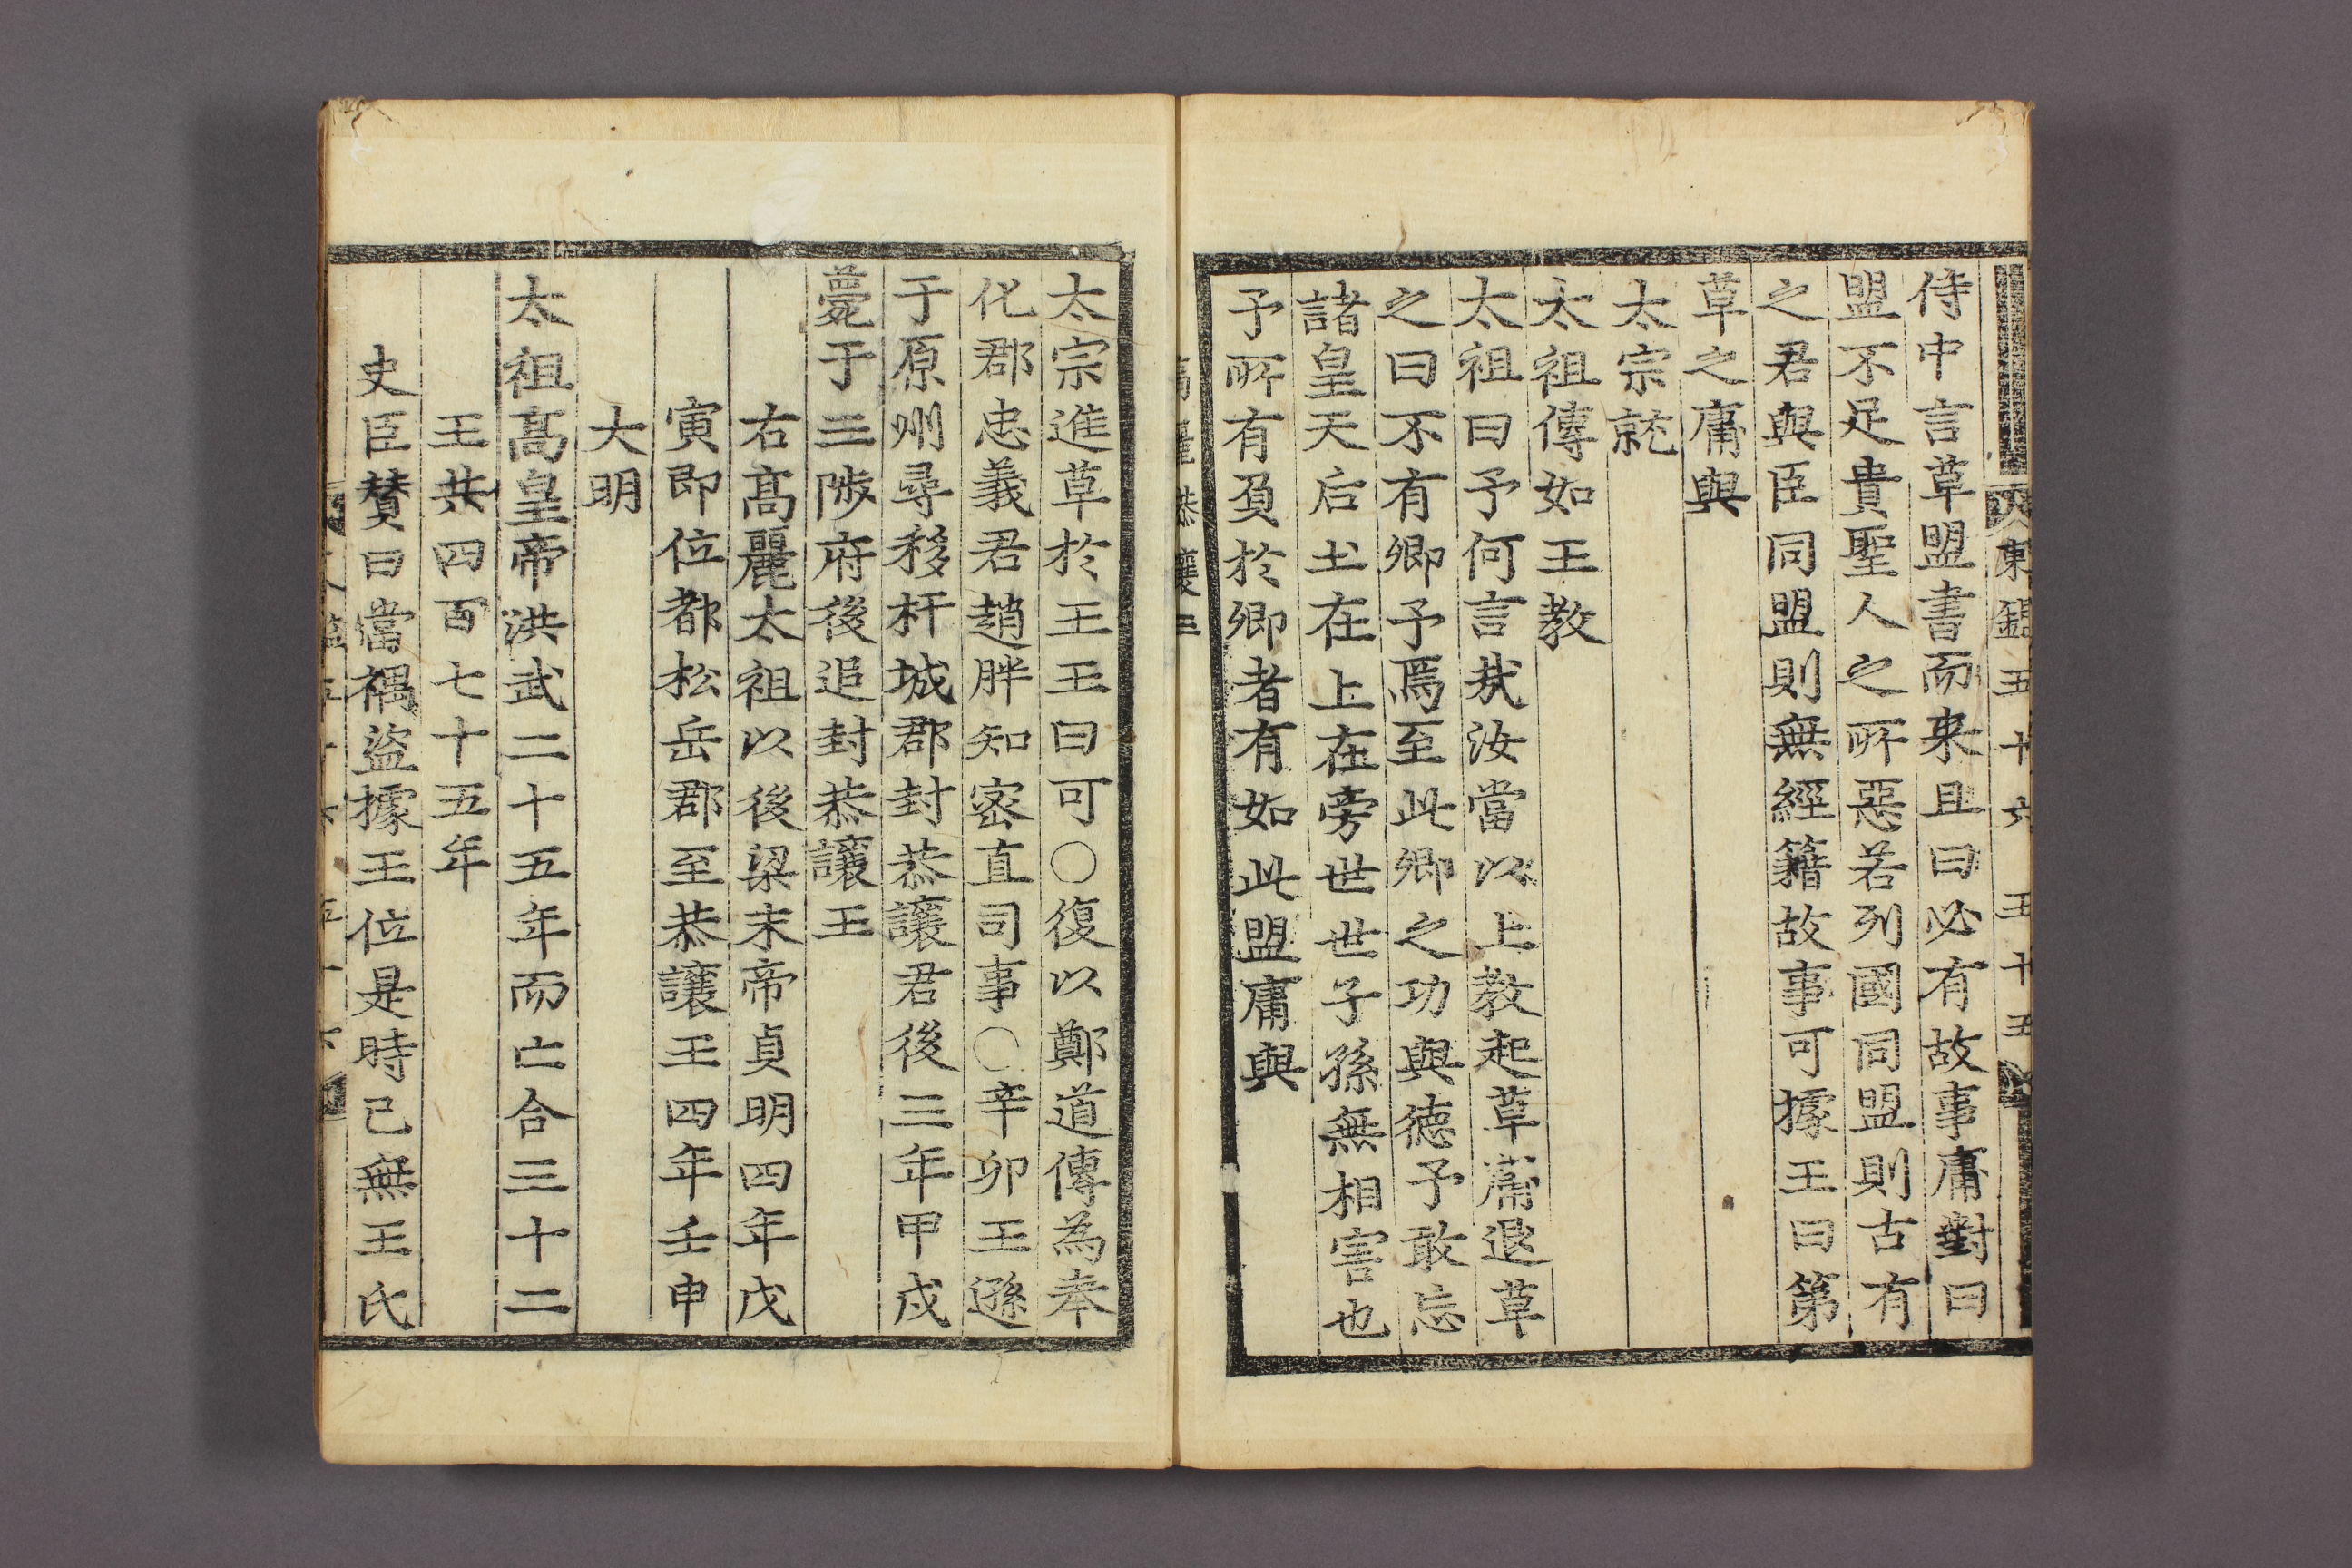 東鑑五十六 五十五
侍中言草盟書而来且曰必有故事庸對曰
盟不足貴聖人之所惡若列國同盟則古有
之君與臣同盟則無經籍故事可據王曰第
草之庸與
太宗就
太祖傳如王教
太祖曰予何言㢤汝當以上教起草庸退草
之曰不有卿予焉至此卿之功與德予敢忘
諸皇天后土在上在旁世世子孫無相害也
予所有負於卿者有如此盟庸與
高麗恭讓三
太宗進草於王王曰可〇復以鄭道傳為奉
化郡忠義君趙胖知密直司事〇辛卯王遜
于原州尋移杆城郡封恭讓君後三年甲戍
薨于三陟府後追封恭讓王
右髙麗太祖以後梁末帝貞明四年戊
寅即位都松岳郡至恭讓王四年壬申
大明
太祖髙皇帝洪武二十五年而亡合三十二
王共四百七十五年
史臣賛曰當禑盜據王位是時已無王氏